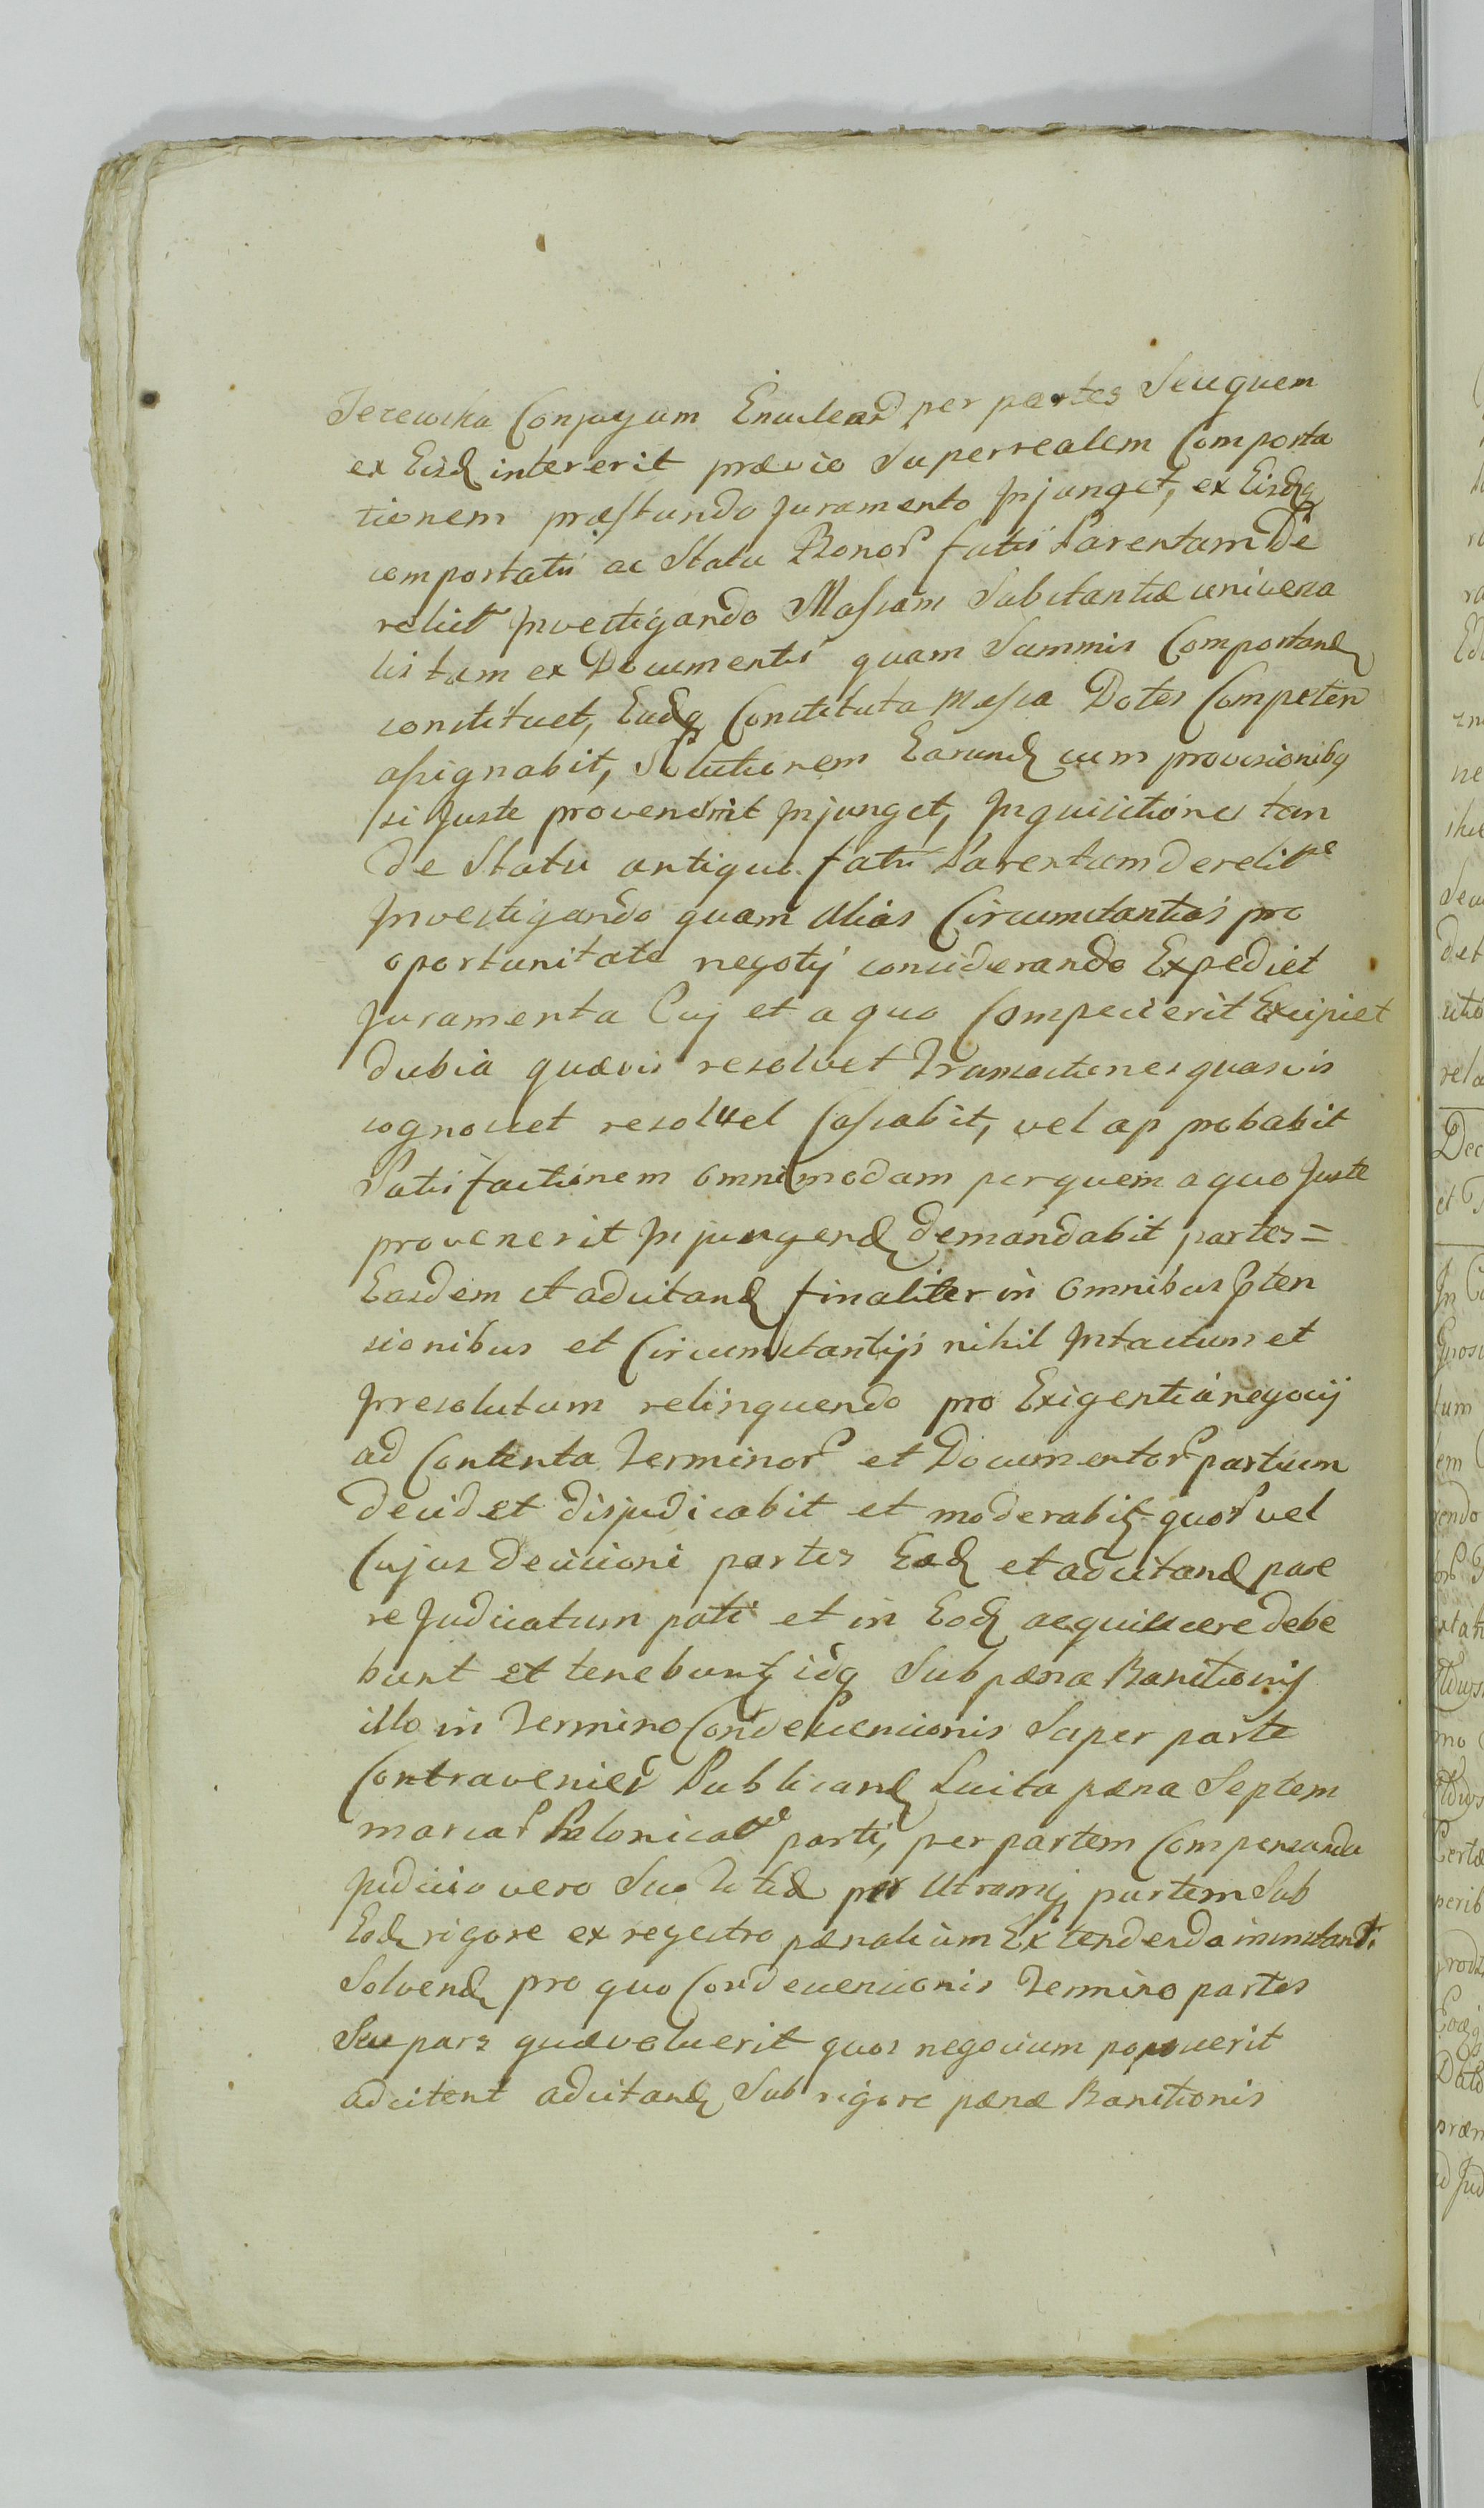 Jezewska Conjugum Enuclead per partes Seu quem
ex Eisd intererit prævio Superrealem Comporta
tionem præstando Juramento Injunget, ex Eisdq
comportatis ac Statu Bonor fatis Parentum De
relict Investigando Massam Substantiæ universa
lis tam ex Documentis quam Summis Comportand
constituet, Eadq Constituta Massa Dotes Competen
assignabit, Solutionem Earund cum provisionibq
si Juste provenerit Injunget, Inquisitiones tan
de Statu antiquo fatis Parentum derelit
Investigando quam Alias Circumstantias pro
oportunitate negotij considerando Expediet
Juramenta Cuj et a quo Competierit Excipiet
dubia quævis resolvet Transactiones quasvis
cognoscet resol vel Cassabit, vel ap probabit
Satisfactionem omnimodam per quem a quo Juste
provenerit Injungend demandabit, partes =
Easdem et adcitand finaliter in omnibus pten
sionibus et Circumstantijs nihil Intactum et
Irresolutum relinquendo pro Exigentia negocij
ad Contenta Terminor et Documentor partium
decidet disjudicabit et moderabit quor vel
Cujus decisioni partes Eæd et adcitand pare
re Judicatum pati et in Eod acquiescere debe
bunt et tenebunt idq Sub pæna Banitionis
illo in Termino Condescensionis Super parte
Contravenied Publicand Luita pæna Septem
marcar Polonical parti, per partem Compensanda
Judicio vero Suo per Utramq partem Sub
Eod rigore ex regestro pænalium Extendenda ininstanti
Solvend pro quo Condescensionis Termino partes
Seu pars quævoluerit quos negocium poposcerit
adcitent adcitand Sub rigore pænæ Banitionis